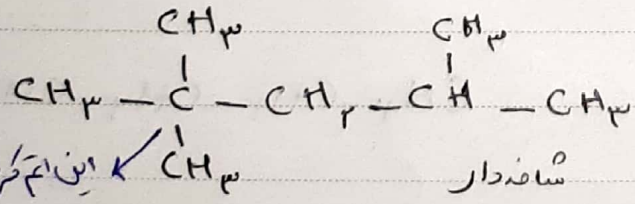 CH₃ CH₃
CH₃ — C — CH₂ — CH — CH₃
این اتم CH₃ شاخه‌دار